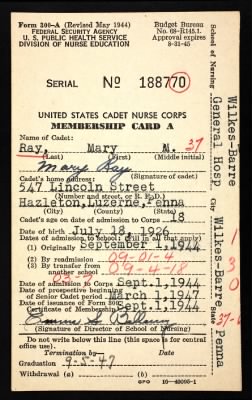 Form 200-A (Revised May 1944)
FEDERAL SECURITY AGENCY
U. S. PUBLIC HEALTH SERVICE
DIVISION OF NURSE EDUCATION
Budget Bureau
No. 68-R145.1.
Approval expires
8-31-45
SERIAL No 188770
UNITED STATES CADET NURSE CORPS
MEMBERSHIP CARD A
Name of Cadet:
Ray, Mary M. 37
(Last) (First) (Middle initial)
Mary Ray
Cadet's home address: (Signature of cadet)
547 Lincoln Street
(Number and street, or R. F. D.)
Hazleton, Luzerne, Penna
(City) (County) (State)
Cadet's age on date of admission to Corps 18
Date of birth July 18, 1926
Dates of admission to School: (Fill in all that apply)
(1) Originally September 1, 1944
(2) By readmission 09-01-4
(3) By transfer from another school 09-4-18
Date of admission to Corps Sept. 1, 1944
Date of prospective beginning of Senior Cadet period March 1, 1947
Date of issuance of Form 300—Certificate of Membership Sept. 1, 1944
(Signature of Director of School of Nursing)
Do not write below this line (this space for central office use).
Termination by Date
Graduation 9-5-47
GPO 16-40095-1
School of Nursing Wilkes-Barre General Hosp
City Wilkes-Barre
State Penna